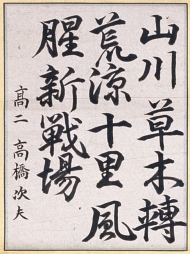 山川草木轉
荒涼十里風
腥新戰場
高二 高橋次夫